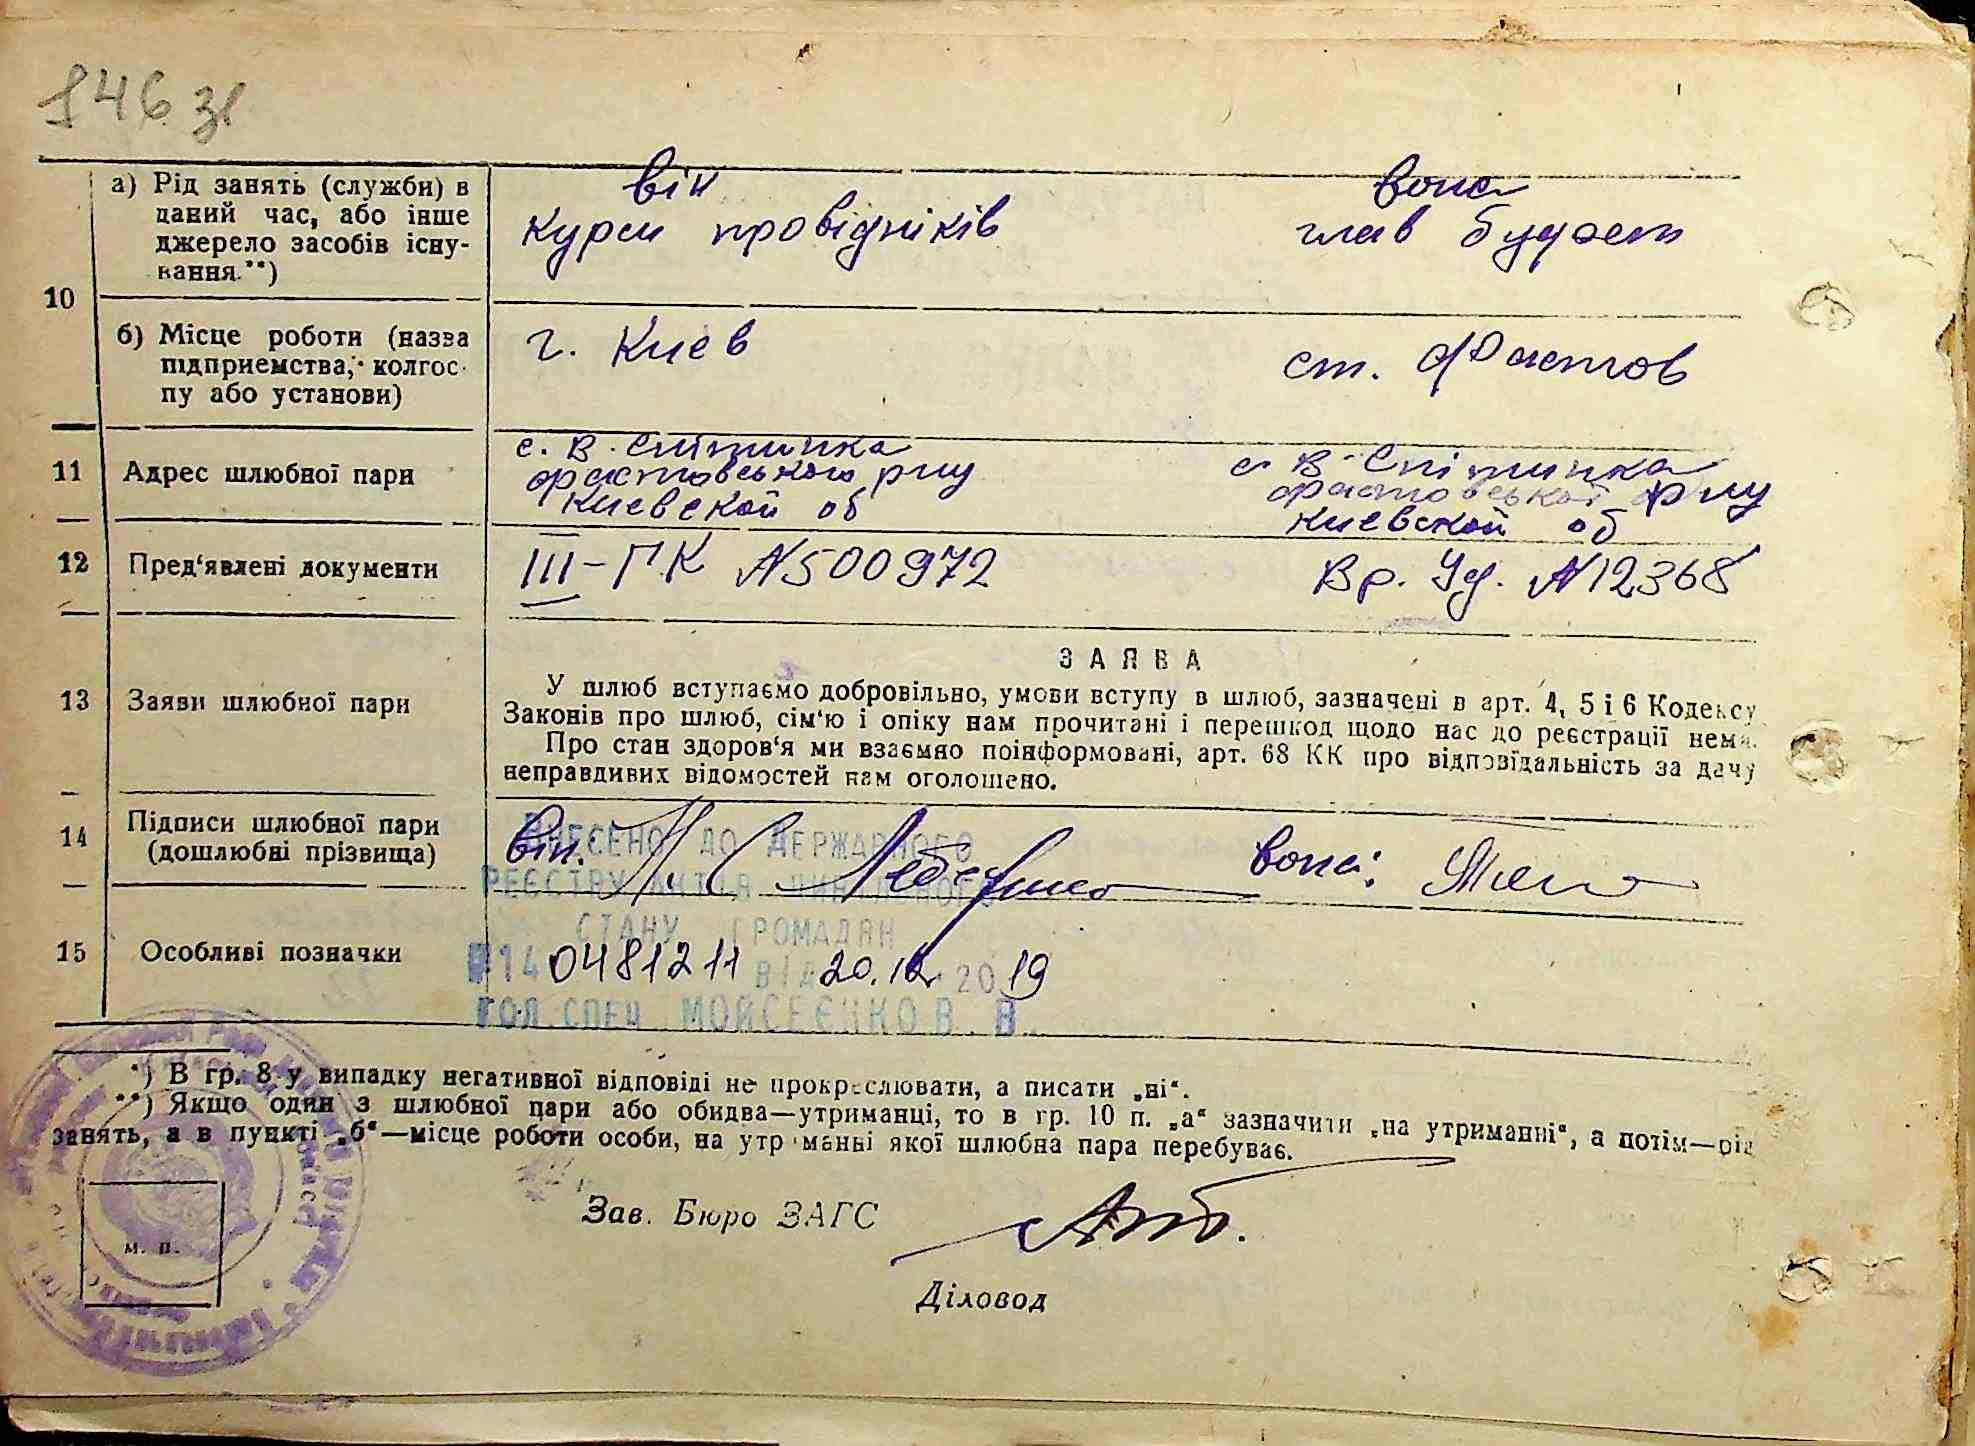 146 зв
він вона
10
а) Рід занять (служби) в
даний час, або інше
джерело засобів існу-
вання.**)
курси провідніків
глав
б) Місце роботи (назва
підприемства, колгос-
пу або установи)
г. Киев
ст. Фастов
11 Адрес шлюбної пари
с. В. Снітинка
фастовського р-ну
Киевской об
с. В. Снітинка
фастовської р-ну
Киевской об
12 Пред‘явлені документи
III-ГК N500972
Вр. Уд. N12368
13 Заяви шлюбної пари
ЗАЯВА
У шлюб вступаємо добровільно, умови вступу в шлюб, зазначені в арт. 4, 5 і 6 Кодексу
Законів про шлюб, сім‘ю і опіку нам прочитані і перешкод щодо нас до реєстрації нема.
Про стан здоров‘я ми взаємно поінформовані, арт. 68 КК про відповідальність за дачу
неправдивих відомостей нам оголошено.
14 Підписи шлюбної пари
(дошлюбні прізвища)
він.
вона:
ВНЕСЕНО ДО ДЕРЖАВНОГО
РЕЄСТРУ АКТІВ ЦИВІЛЬНОГО
СТАНУ ГРОМАДЯН
15 Особливі позначки
№14 0481211 ВІД 20.12. 2019
ГОЛ.СПЕЦ МОЙСЕЄНКО В. В.
*) В гр. 8 у випадку негативної відповіді не прокреслювати, а писати „ні“.
**) Якщо один з шлюбної пари або обидва—утриманці, то в гр. 10 п. „а“ зазначити „на утриманні“, а потім—рід
занять, а в пункті „б“—місце роботи особи, на утриманні якої шлюбна пара перебуває.
Зав. Бюро ЗАГС
м. п.
Діловод